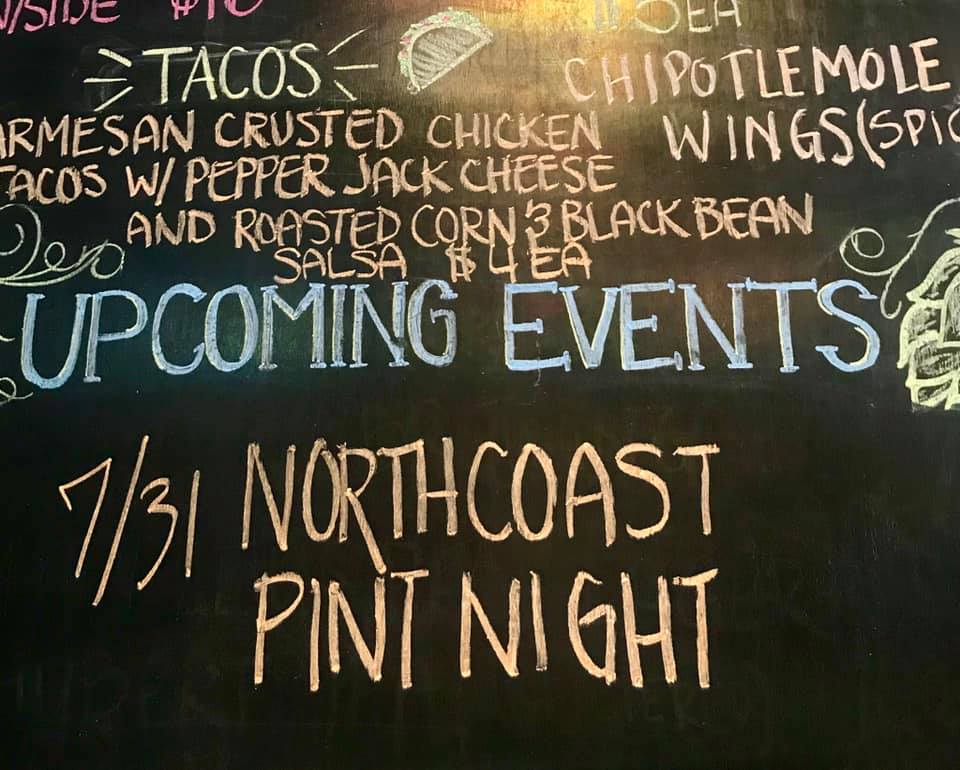 W/SIDE $10
TACOS
ARMESAN CRUSTED CHICKEN
TACOS W/ PEPPER JACK CHEESE
AND ROASTED CORN & BLACK BEAN
SALSA $4 EA
EA
CHIPOTLE MOLE
WINGS (SPIC
UPCOMING EVENTS
7/31 NORTHCOAST
PINT NIGHT